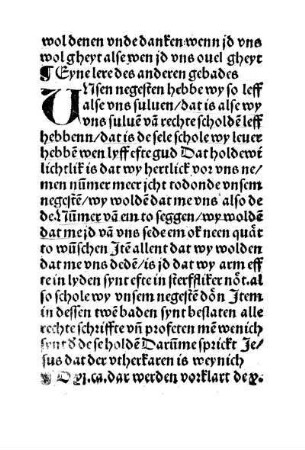 wol denen vnde danken wenn jd vns
wol gheyt alse wen jd vns ouel gheyt
¶ Eyne lere des anderen gebades
Unsen negesten hebbe wy so leff
alse vns suluen/dat is alse wy
vns suluē vā rechte scholdē leff
hebbenn/dat is de sele schole wy leuer
hebbē wen lyff efte gud Dat holde wi
lichtlik is dat wy hertlick vor vns ne/
men nūmer meer jcht todonde vnsem
negestē/wy woldēn dat me vns also de
de Nūmer vā em to seggen/wy woldē
dat me jd vā vns sede em ok neen quāt
to wūschen Itē allent dat wy wolden
dat me vns dedē/is jd dat wy arm eff
te in lyden synt efte in sterfliker nōt.al
so schole wy vnsem negestē dōn Item
in dessen twē baden synt beslaten alle
rechte schriffte vñ profeten mē wenich
synt ð de se holdē Darūme sprickt Je/
sus dat der vtherkaren is weynich
dar werden vorklart de